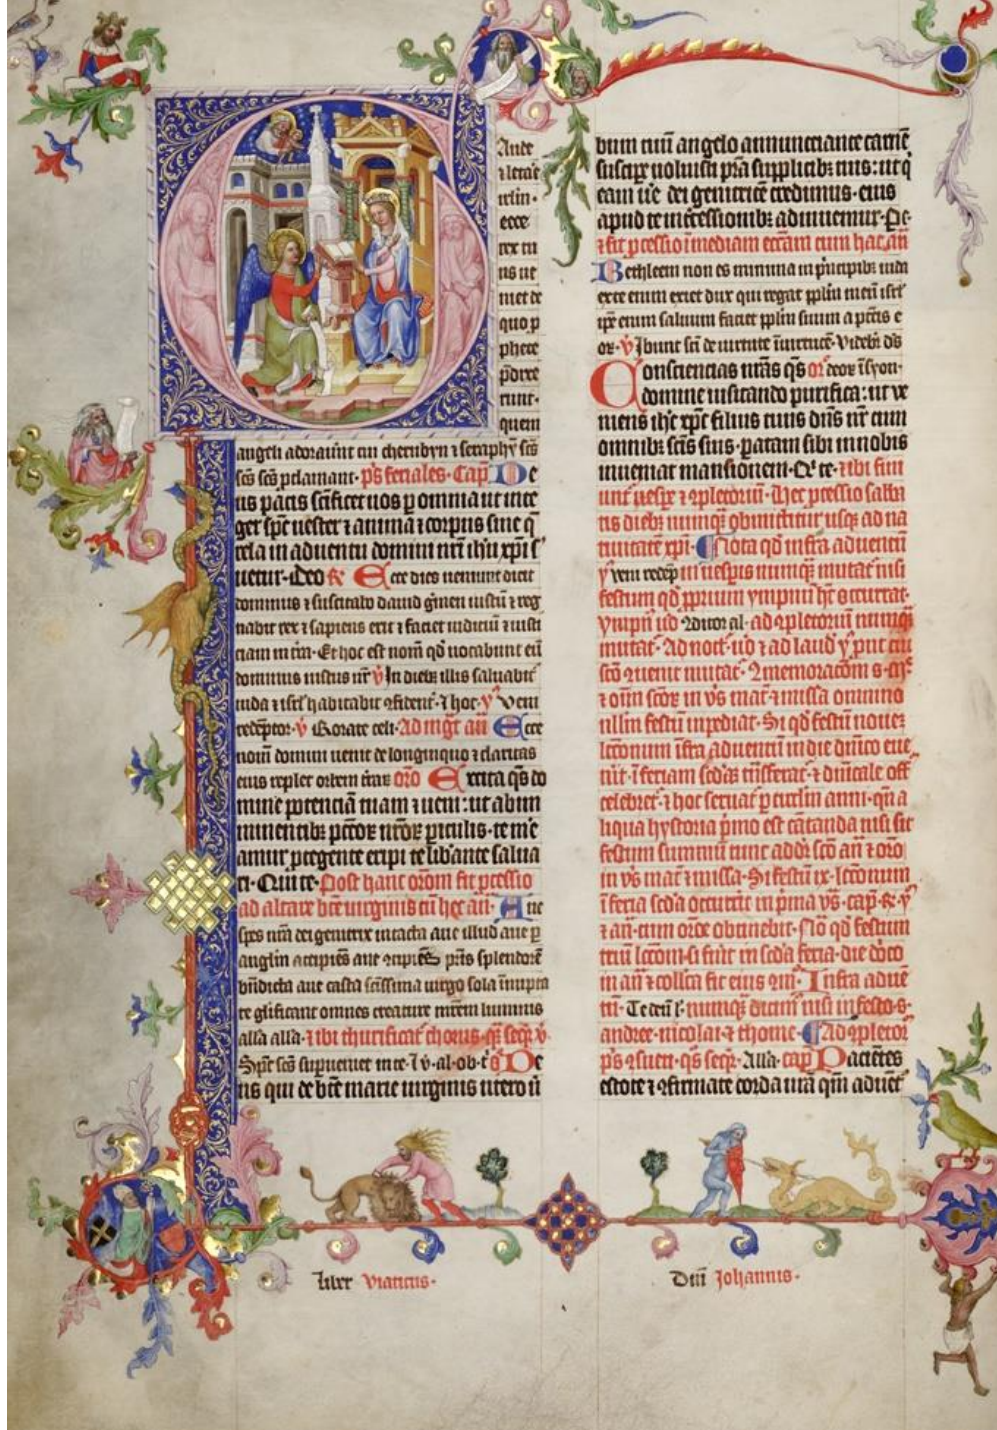 Aude
⁊ letare
irlm·
ecce
rex tu
us ue
niet de
quo p
phete
p̄dixe
runt·
quem
angeli adorauūt cui cherubyn ⁊ seraphyn sc̄s
sc̄s sc̄s p̄clamant· ps̄ feriales· Cap̄ De
us pacis sc̄ificet uos p omnia ut inte
ger sp̄c uester ⁊ anima ⁊ corpus sine q̄
rela in aduentu domini nr̄i ih̄u xp̄i
uetur· Deo R Ecce dies ueniunt dicit
dominus ⁊ suscitabo dauid g̾men iustū ⁊ reg
nabit rex ⁊ sapiens erit ⁊ faciet iudiciū ⁊ iusti
ciam in t̄ra· Et hoc est nom̄ qd̄ uocabunt eū
dominus iustus nr̄ V In dieb̄ illis saluabit̄
iuda ⁊ isr̄l habitabit 9fident̄· ⁊ hoc· V Veni
redēptor· V Rorate celi· Ad mg̅t an̄ Ecce
nom̄ domini uenit de longinquo ⁊ claritas
eius replet orbem t̄rar̄ or̄o Excita qs̄ do
mine potenciā tuam ⁊ ueni: ut ab im
minentib̄ pccōꝝ nr̄oꝝ piculis· te me
amur ptegente eripi te lib̾ante salua
ri· Qui te· Post hanc or̄om fit pcessio
ad altare btē uirginis cū hac an̄· Aue
spes nr̄a dei genitrix intacta aue illud aue p
angl̄m accipiēs aue 9cipiēs pr̄is splendorē
bn̄dicta aue casta sc̄issima uirgo sola īnupta
te glificant omnes creature mr̄em luminis
alla alla· ⁊ ibi thurificat̄ chorus· seqr̄ V·
Sp̄c sc̄s supueniet in te· De
us qui de bt̄e marie uirginis utero ū
bum tuū angelo annunciante carnē
suscipe uoluisti pr̄a supplicib̄ tuis: ut q
eam ue̅ dei genitricē credimus· eius
apud te int̾cessionib̄ adiuuemur· Pe·
⁊ fit pcessio ī mediam ecc̄am cum hac an̄
Bethleem non es minima in p̾ncipib̄ iuda
ex te enim exiet dux qui regat pplm̄ meū isr̄l
ip̄e enim saluum faciet pplm̄ suum a pctīs e
oꝝ· V Ibunt sc̄i de uirtute ī uirtutē· Videbit̄ ds̄
Consciencias nr̄as qs̄ or̄ deoꝝ ī syon·
domine uisitando purifica: ut ve
niens ih̄c xp̄c filius tuus dn̄s nr̄ cum
omnib̄ sc̄is suis· patam sibi in nobis
inueniat mansionem· Q te· ⁊ ibi fini
unt̄ uespe ⁊ 9pletoriū· Hec pcessio sabba
tis dieb̄ nunq̄ obmittitur usq̄ ad na
tiuitatē xp̄i· Nota qd̄ infra aduentū
V Veni redēp in uespis nunq̄ mutat̄ nisi
festum qd̄ p̄prium ympnū h̄t occurrat·
Ympn̄ uō Conditor al· ad 9pletoriū nunq̄
mutat̄·
⁊ om̄ sc̄oꝝ in vs̄ mat̄ ⁊ missa omnino
nllm̄ festū inpediat· Si qd̄ festū nouē
lcc̄onum īfra aduentū in die dn̄ico eue·
celebret̄· ⁊ hoc seruat̄ p circl̄m anni· q̄n a
liqua hystoria p̾mo est cātanda nisi sit
festum summū tunc
in vs̄ mat̄ ⁊ missa· Si festū ix· lcc̄onum
ī feria sc̄da occurrit in p̾ma vs̄· cap̄· R· V
⁊ an̄· cum or̄oe obtinebit· No qd̄ festum
triū lcc̄om̄ si fuit̄ in sc̄da feria· die
in an̄ ⁊ coll̄ca fit eius Infra aduē
tū· Te deū l· nunq̄ dicim̄ nisi in festo s·
andree· nicolai· ⁊ thome· Ad 9pletor̄
Alla· cap̄ Pacientes
estote ⁊ 9firmate corda ur̄a qm̄ aduet̄
liber viaticus·
Dn̄i Johannis·